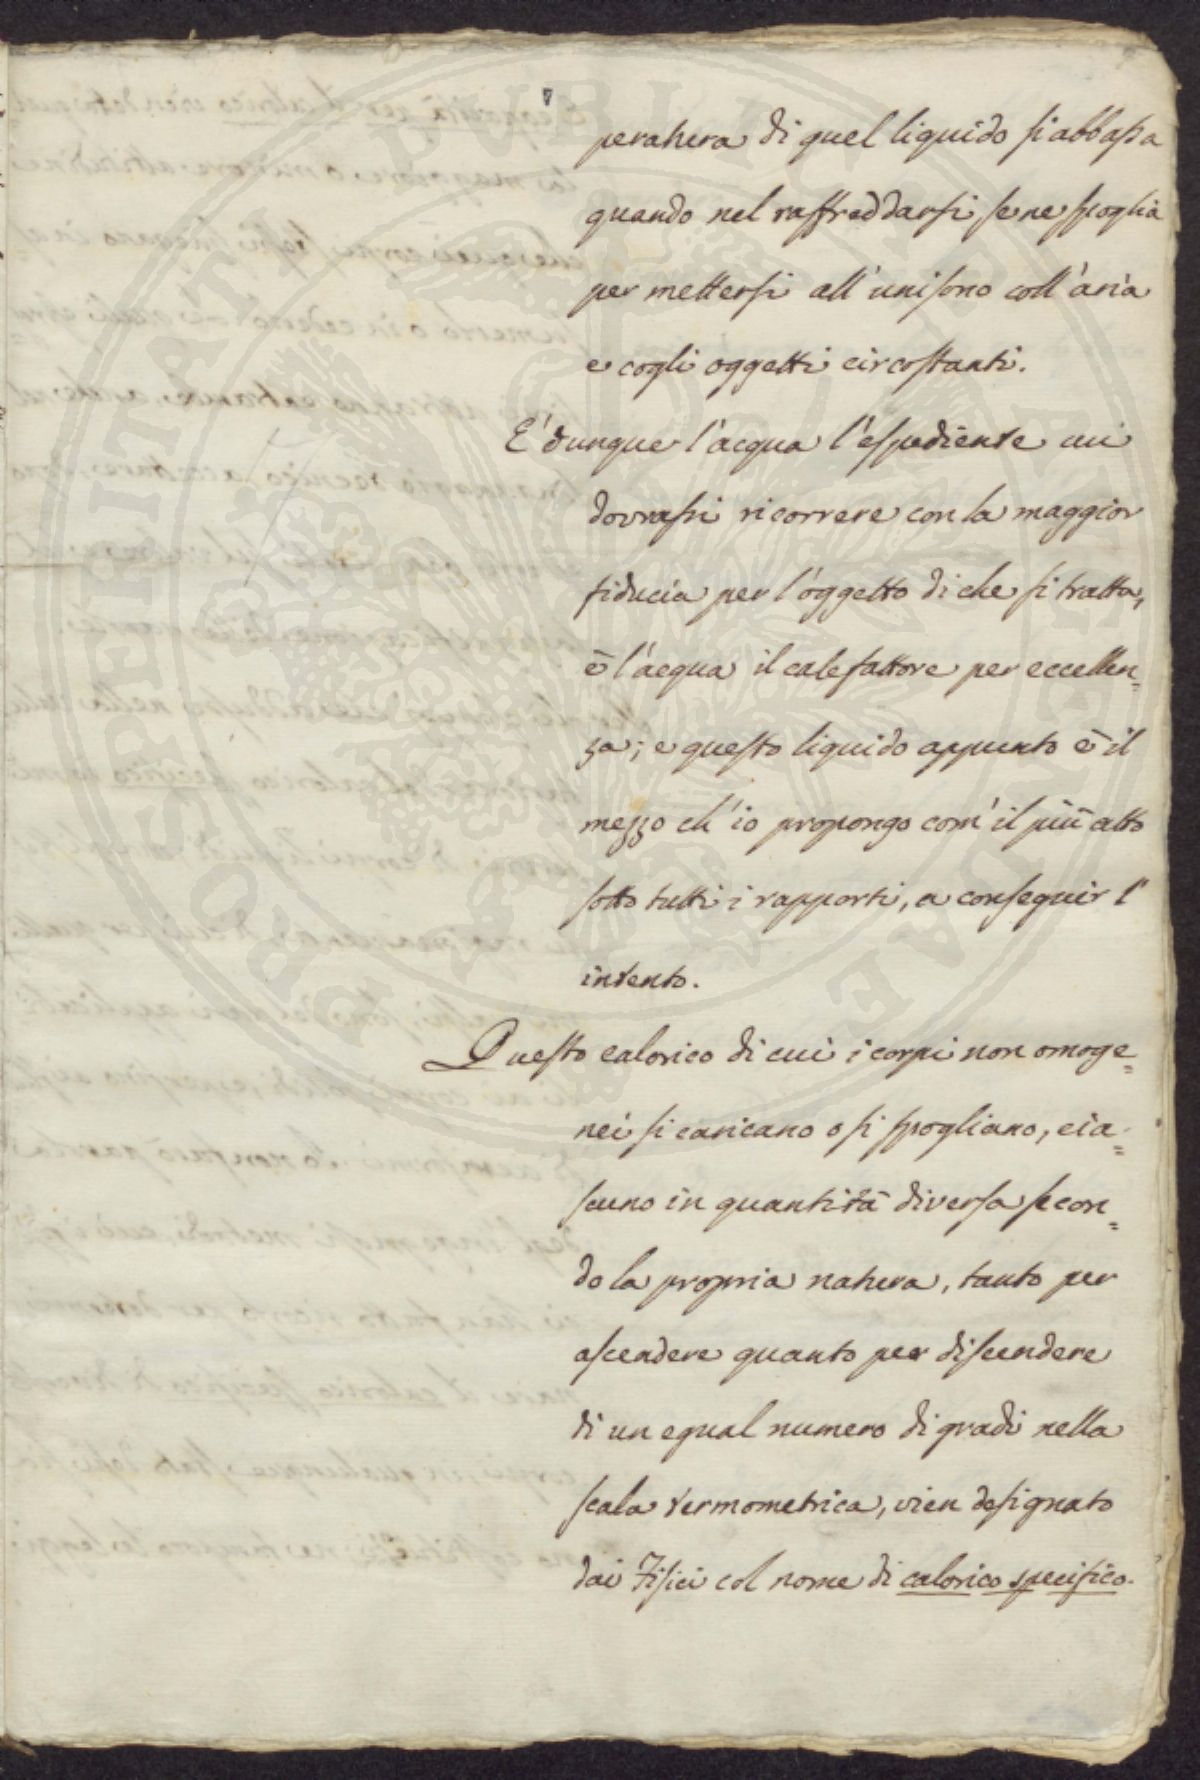 peratura di quel liquido si abbassa
quando nel raffreddarsi, se ne spoglia
per mettersi all'unisono coll'aria
e cogli oggetti circostanti.
E' dunque l'acqua l'espediente cui
dovrassi ricorrere con la maggior
fiducia per l'oggetto di che si tratta,
è l'acqua il calefattore per eccellen=
za; e questo liquido appunto è il
mezzo ch'io propongo com'il più atto
sotto tutti i rapporti, a conseguir l'
intento.
Questo calorico di cui i corpi non omoge=
nei si caricano o si spogliano, cia=
scuno in quantità diversa secon=
do la propria natura, tanto per
ascendere quanto per discendere
di un egual numero di gradi nella
scala termometrica, vien designato
dai Fisici col nome di calorico specifico.
PROSPERITATI PUBLICAE AUGENDAE